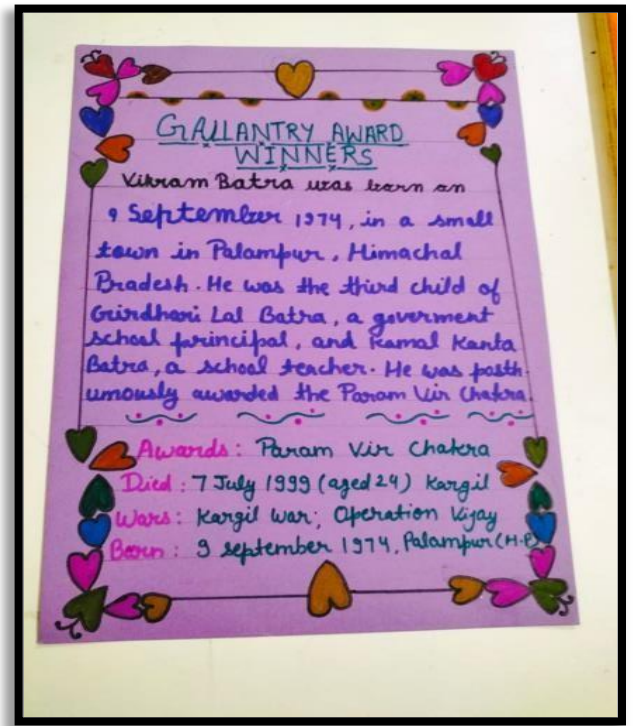 GALLANTRY AWARD
WINNERS
Vikram Batra was born on
9 September 1974, in a small
town in Palampur, Himachal
Pradesh. He was the third child of
Girdhari Lal Batra, a goverment
school principal, and Kamal Kanta
Batra, a school teacher. He was posth
umously awarded the Param Vir Chakra
Awards: Param Vir Chakra
Died: 7 July 1999 (aged 24) Kargil
Wars: Kargil War; Operation Vijay
Born: 9 september 1974, Palampur (H.P)